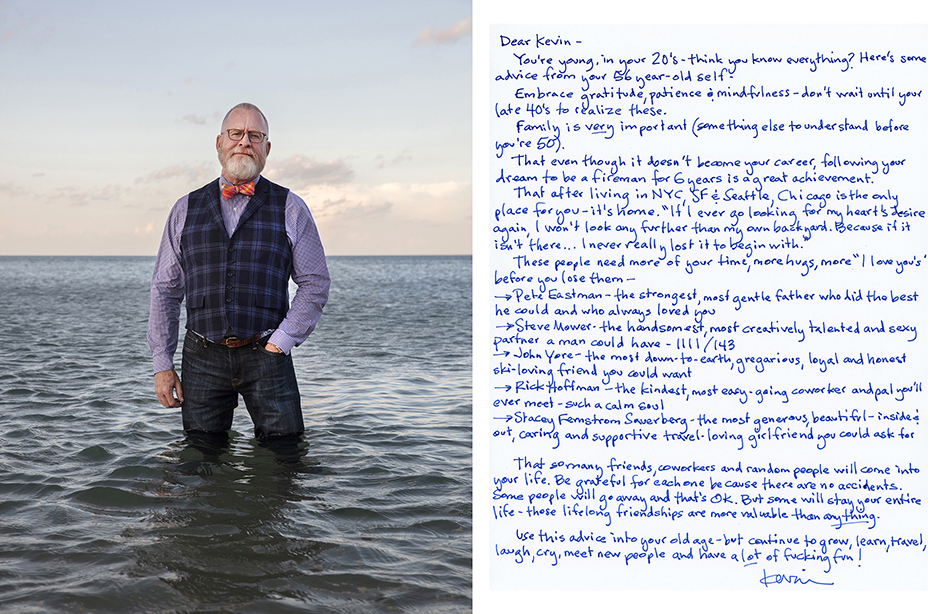 Dear Kevin -
You're young, in your 20's - think you know everything? Here's some
advice from your 56 year-old self -
Embrace gratitude, patience & mindfulness - don't wait until your
late 40's to realize these.
Family is very important (something else to understand before
you're 50).
That even though it doesn't become your career, following your
dream to be a fireman for 6 years is a great achievement.
That after living in NYC, SF & Seattle, Chicago is the only
place for you - it's home. "If I ever go looking for my heart's desire
again, I won't look any further than my own backyard. Because if it
isn't there... I never really lost it to begin with."
These people need more of your time, more hugs, more "I love you's"
before you lose them -
→ Pete Eastman - the strongest, most gentle father who did the best
he could and who always loved you
→ Steve Mower - the handsomest, most creatively talented and sexy
partner a man could have - 1111/143
→ John Yore - the most down-to-earth, gregarious, loyal and honest
ski-loving friend you could want
→ Rick Hoffman - the kindest, most easy-going coworker and pal you'll
ever meet - such a calm soul
→ Stacey Fernstrom Sauerberg - the most generous, beautiful - inside &
out, caring and supportive travel-loving girlfriend you could ask for
That so many friends, coworkers and random people will come into
your life. Be grateful for each one because there are no accidents.
Some people will go away and that's OK. But some will stay your entire
life - those lifelong friendships are more valuable than anything.
Use this advice into your old age - but continue to grow, learn, travel,
laugh, cry, meet new people and have a lot of fucking fun!
Kevin